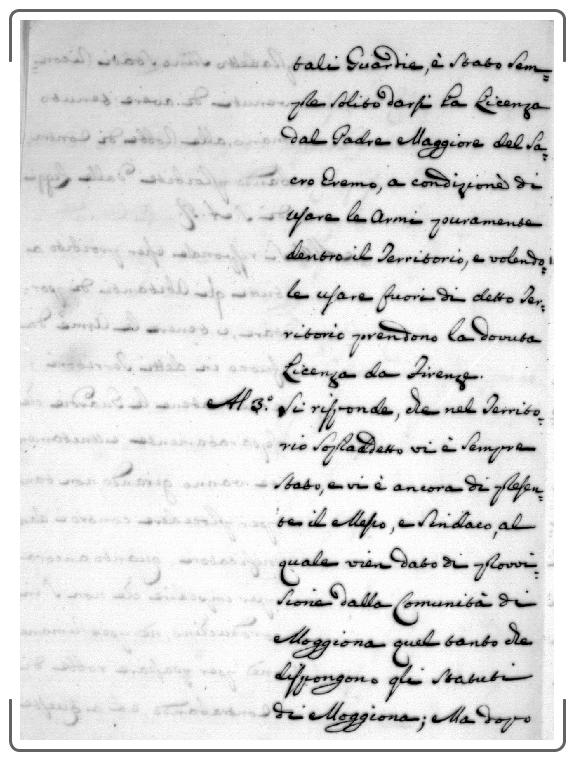 tali Guardie, è stato sem=
pre solito darsi la Licenza
dal Padre Maggiore del Sa=
cro Eremo, a condizione di
usare le Armi puramente
dentro il Territorio, e volendo=
le usare fuori di detto Ter=
ritorio prendono la dovuta
Licenza da Firenze.
Al 3.° Si risponde, che nel Territo=
rio Sopraddetto vi è sempre
stato, e vi è ancora di presen=
te il Messo, e Sindaco, al
quale vien dato di provvi=
sione dalla Comunità di
Moggiona quel tanto che
dispongono gli Statuti
di Moggiona; Ma dopo